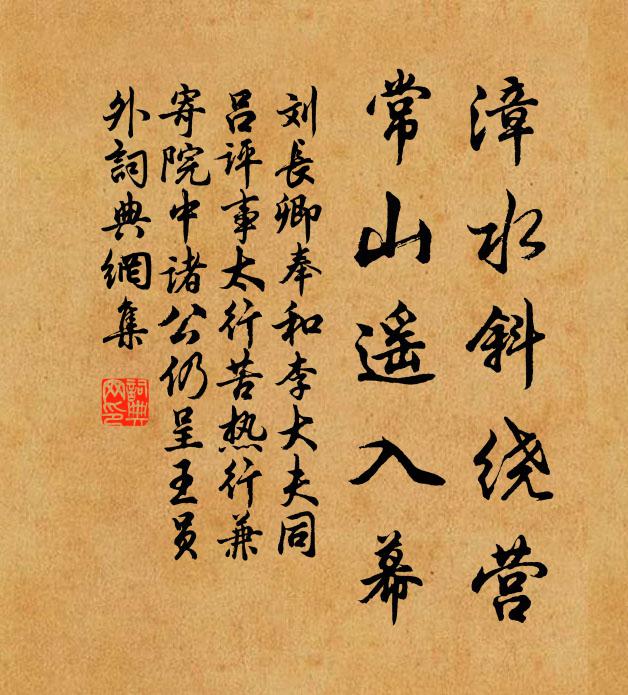 漳水斜绕营
常山遥入幕
刘長卿奉和李大夫同
吕评事太行苦热行兼
寄院中诸公仍呈王員
外詞典網集
詞典网印